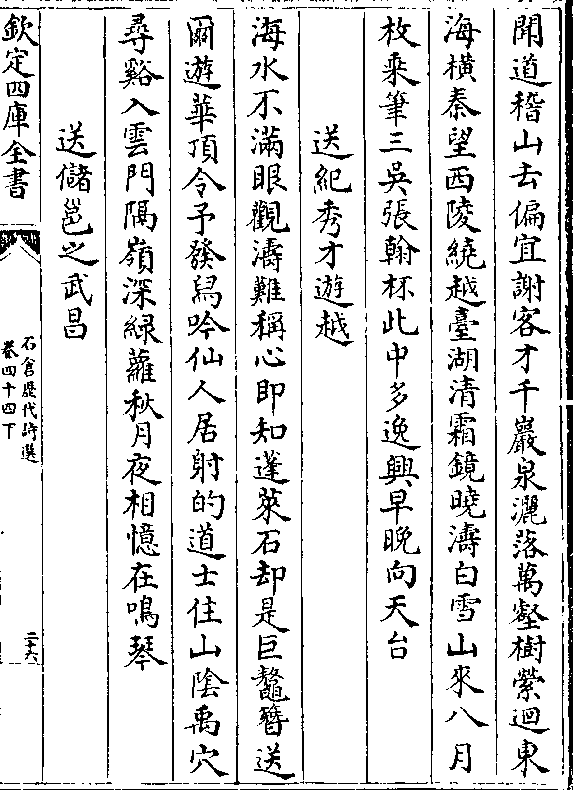 聞道稽山去偏宜謝客才千巖泉灑落萬壑樹縈迴東
海橫秦望西陵繞越臺湖清霜鏡曉濤白雪山來八月
枚乘筆三吳張翰杯此中多逸興早晚向天台
送紀秀才遊越
海水不滿眼觀濤難稱心即知蓬萊石却是巨鼇簪送
爾遊華頂令予發舄吟仙人居射的道士住山陰禹穴
尋谿入雲門隔嶺深綠蘿秋月夜相憶在鳴琴
送儲邕之武昌
欽定四庫全書
石倉歷代詩選
卷四十四下
二十六